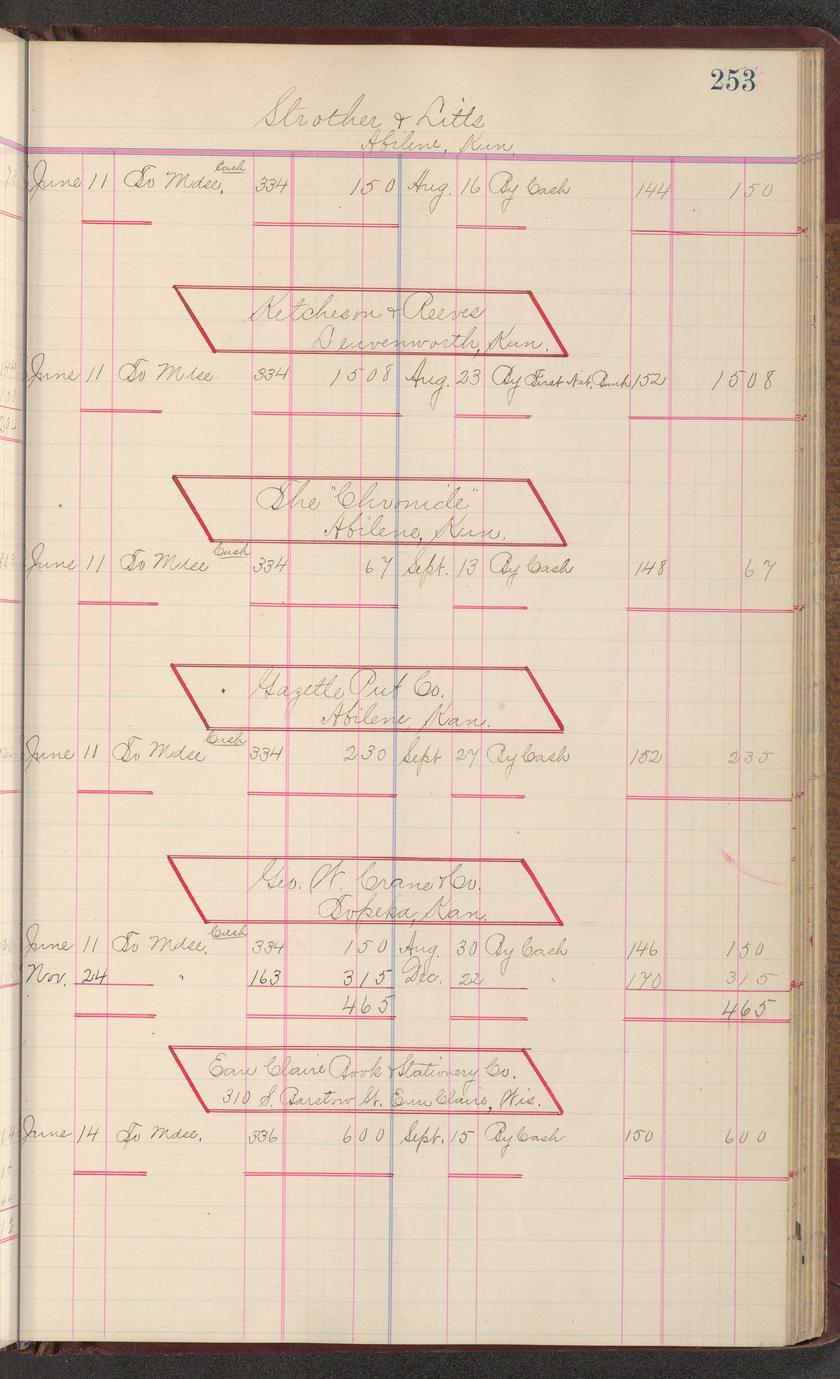 253
Strother & Litts
Abilene, Kan.
June 11 To Mdse. Cash 334 150 Aug. 16 By Cash 144 150
Ketcheson & Reeves
Leavenworth, Kan.
June 11 To Mdse 334 1508 Aug. 23 By First Nat. Bank 152 1508
The "Chronicle"
Abilene, Kan.
June 11 To Mdse Cash 334 67 Sept. 13 By Cash 148 67
Gazette Pub Co.
Abilene, Kan.
June 11 To Mdse Cash 334 230 Sept 27 By Cash 152 235
Geo. W. Crane & Co.
Topeka, Kan.
June 11 To Mdse. Cash 334 150 Aug. 30 By Cash 146 150
Nov. 24 " 163 315 Dec. 22 " 170 315
465 465
Eau Claire Book & Stationery Co.
310 S. Barstow St. Eau Claire, Wis.
June 14 To Mdse. 336 600 Sept. 15 By Cash 150 600